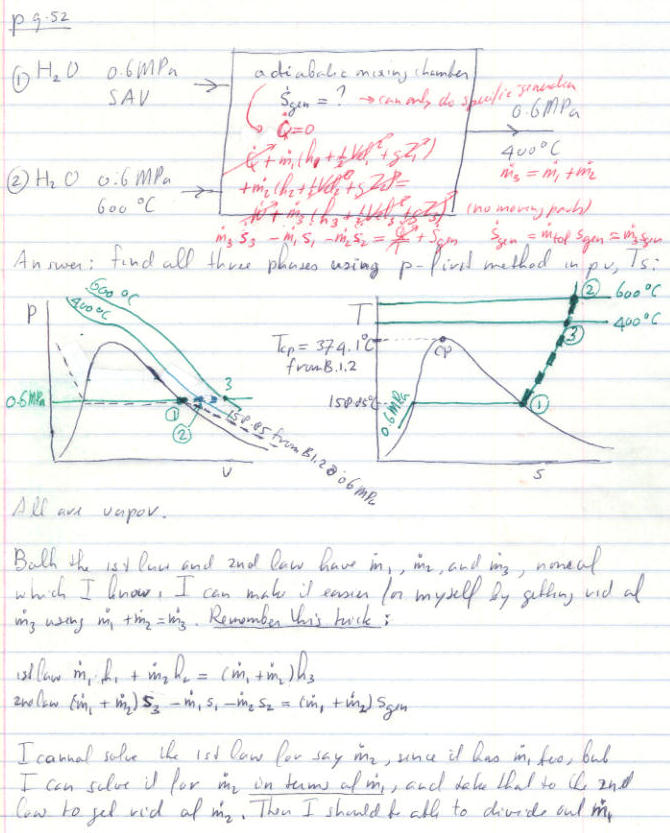 p 9.52
① H₂O 0.6 MPa
SAV
adiabatic mixing chamber
Ṡgen = ? → can only do specific generation
Q̇=0
0.6MPa
400°C
ṁ₃ = ṁ₁+ṁ₂
Q̇ + ṁ₁(h₁ + ½Vel₁² + gZ₁)
② H₂O 0.6 MPa
600 °C
+ṁ₂(h₂+½Vel₂²+gZ₂) =
Ẇ + ṁ₃(h₃ + ½Vel₃² + gZ₃) (no moving parts)
ṁ₃ s₃ - ṁ₁ s₁ - ṁ₂ s₂ = Q̇/T + Ṡgen
Ṡgen = ṁtot sgen = ṁ₃ sgen
Answer: find all three phases using p-first method in pv, Ts:
600 °C
400°C
P
0.6MPa
①
②
3
158.85 from B.1.2 @ 0.6 MPa
v
T
Tcp = 374.1°C
from B.1.2
CP
② 600°C
400°C
③
158.85°C
0.6MPa
①
s
All are vapor.
Both the 1st law and 2nd law have ṁ₁, ṁ₂, and ṁ₃, none of
which I know. I can make it easier for myself by getting rid of
ṁ₃ using ṁ₁ + ṁ₂ = ṁ₃. Remember this trick:
1st law ṁ₁ h₁ + ṁ₂ h₂ = (ṁ₁ + ṁ₂) h₃
2nd law (ṁ₁ + ṁ₂) s₃ - ṁ₁ s₁ - ṁ₂ s₂ = (ṁ₁ + ṁ₂) sgen
I cannot solve the 1st law for say ṁ₂, since it has ṁ₁ too, but
I can solve it for ṁ₂ in terms of ṁ₁, and take that to the 2nd
law to get rid of ṁ₂. Then I should be able to divide out ṁ₁